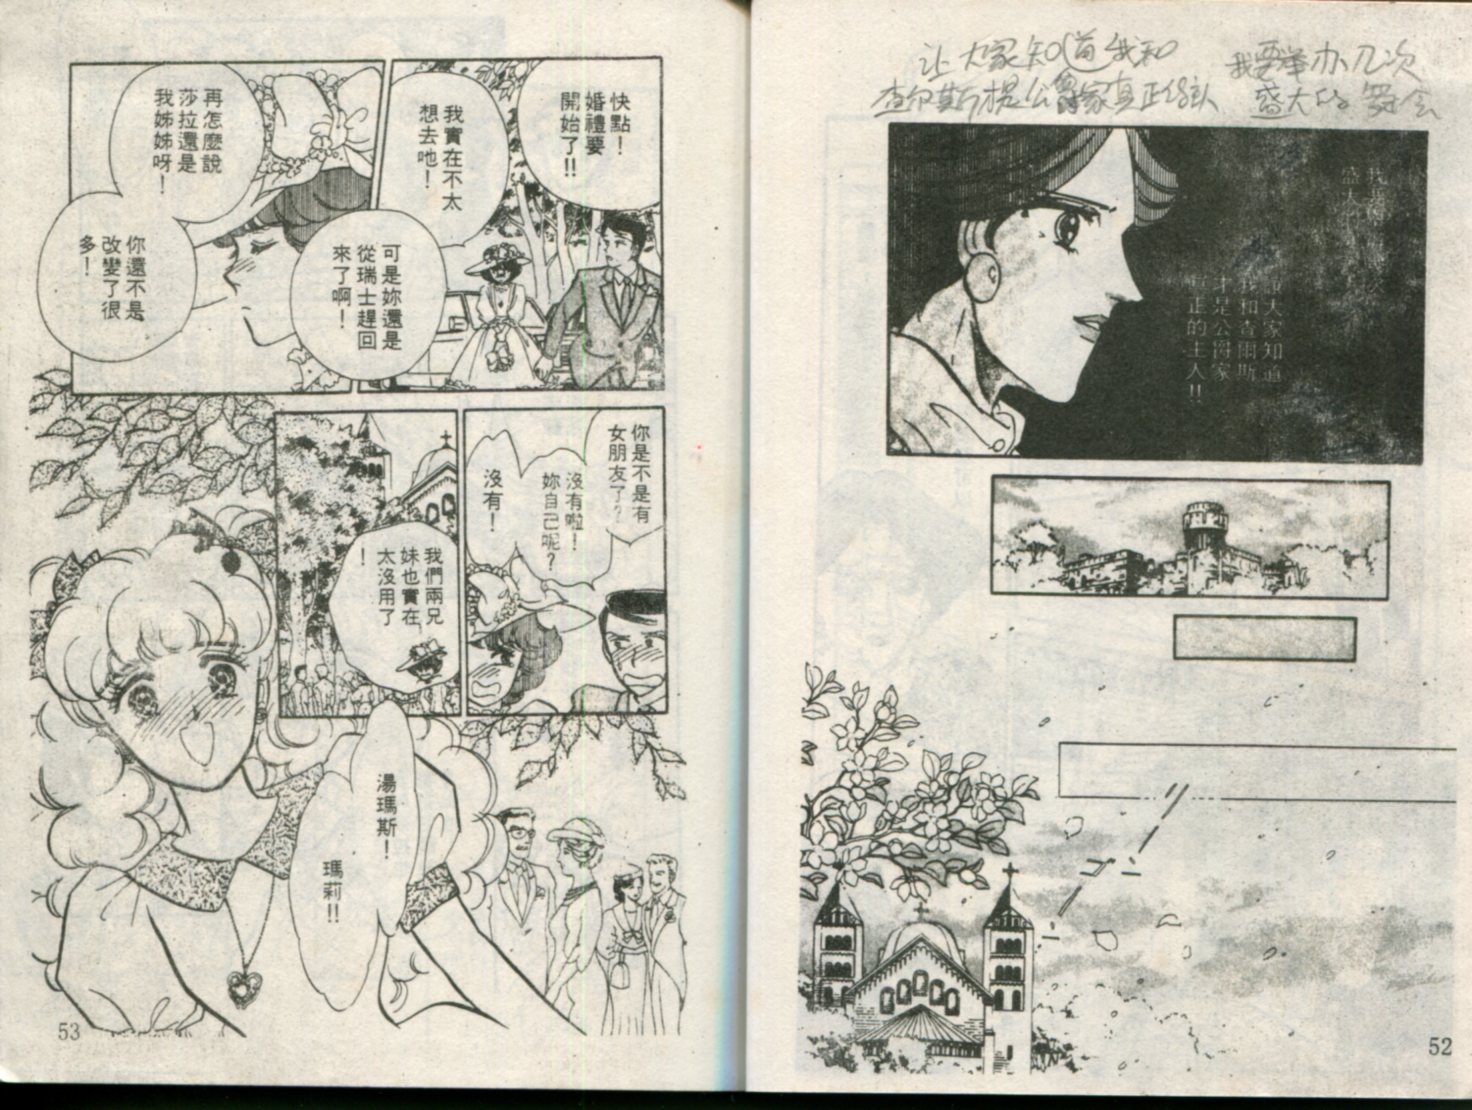 我要举办几次
盛大的舞会
让大家知道我和
查尔斯才是公爵家真正的主人
我要舉辦幾次
盛大
讓大家知道
我和查爾斯
才是公爵家
真正的主人!!
52
快點!
婚禮要
開始了!!
我實在不太
想去吔!
可是妳還是
從瑞士趕回
來了啊!
再怎麼說
莎拉還是
我姊姊呀!
你還不是
改變了很
多!
你是不是有
女朋友了?
沒有啦!
妳自己呢?
沒有!
我們兩兄
妹也實在
太沒用了
!
湯瑪斯!
瑪莉!!
53